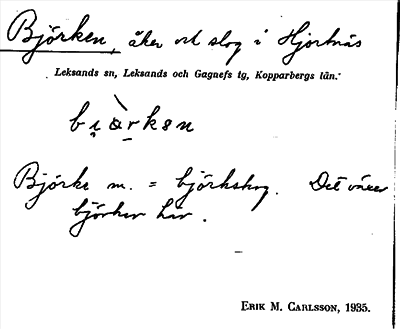 Björken, åker och slog i Hjortnäs
Leksands sn, Leksands och Gagnefs tg, Kopparbergs län.
Björke m. = björkskog. Det växer
björker här.
ERIK M. CARLSSON, 1935.